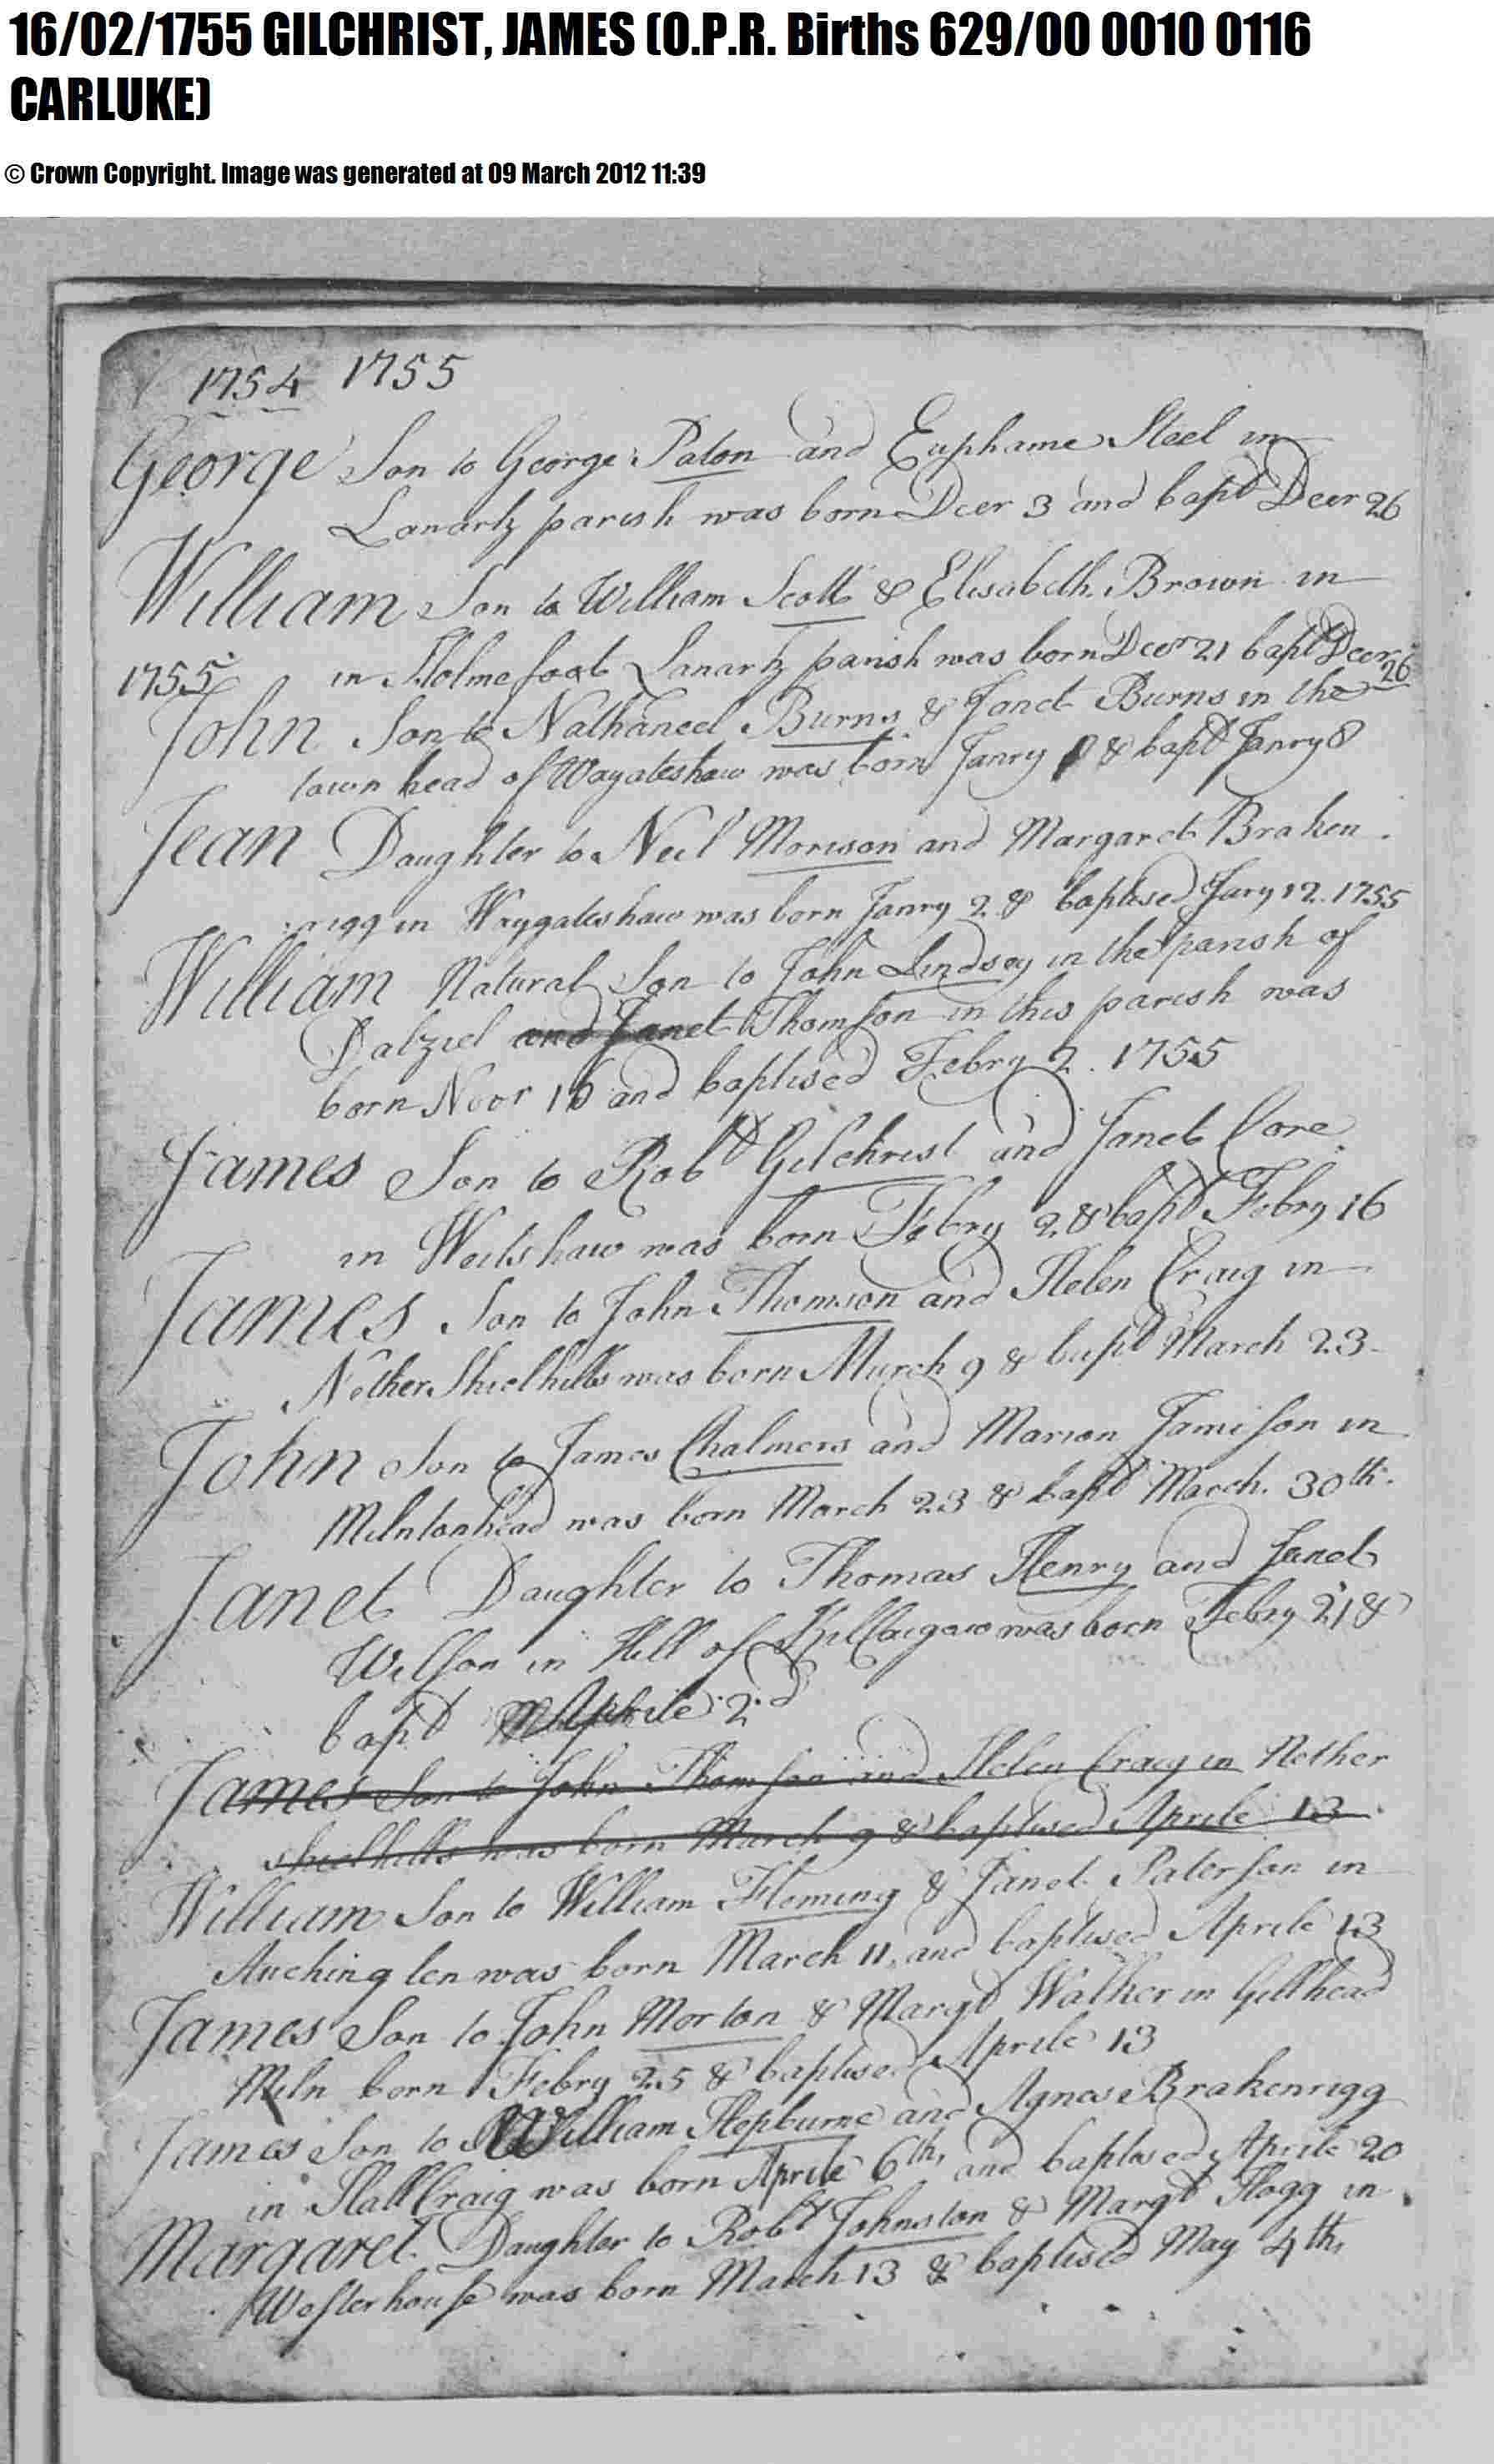 16/02/1755 GILCHRIST, JAMES (O.P.R. Births 629/00 0010 0116
CARLUKE)
© Crown Copyright. Image was generated at 09 March 2012 11:39
1754 1755
George Son to George Paton and Euphame Steel in
Lanark parish was born Decr 3 and bapd Decr 26
William Son to William Scott & Elisabeth Brown in
1755 in Holmefoot Lanark parish was born Decr 21 bapd Decr 26
John Son to Nathaneel Burns & Janet Burns in the
town head of Wayateshaw was born Janry & bapd Janry 8
Jean Daughter to Neil Morison and Margaret Braken
rigg in Waygateshaw was born Janry 2 & baptised Jary 12. 1755
William Natural Son to John Lindsey in the parish of
Dalziel and Janet Thomson in this parish was
born Novr 16 and baptised Febry 2. 1755
James Son to Robd Gilchrist and Janet Core
in Weitshaw was born Febry 2 & bapd Febry 16
James Son to John Thomson and Helen Craig in
Nether Shielhills was born March 9 & bapd March 23
John Son to James Chalmers and Marion Jamison in
Milntonhead was born March 23 & bapd March. 30th.
Janet Daughter to Thomas Henry and Janet
Wilson in Hill of Kilcaigow was born Febry 21 &
bapd Aprile 2d
James Son to John Thomson and Helen Craig in Nether
shielhills was born March 9 & baptised Aprile 13
William Son to William Fleming & Janet Paterson in
Auchinglen was born March 11, and baptised Aprile 13
James Son to John Morton & Margt Walker in Gillhead
Miln born Febry 25 & baptised Aprile 13
James Son to William Hepburne and Agnes Brakenrigg
in HallCraig was born Aprile 6th, and baptised Aprile 20
Margaret Daughter to Robt Johnston & Margt Hogg in
Westerhouse was born March 13 & baptised May 4th,